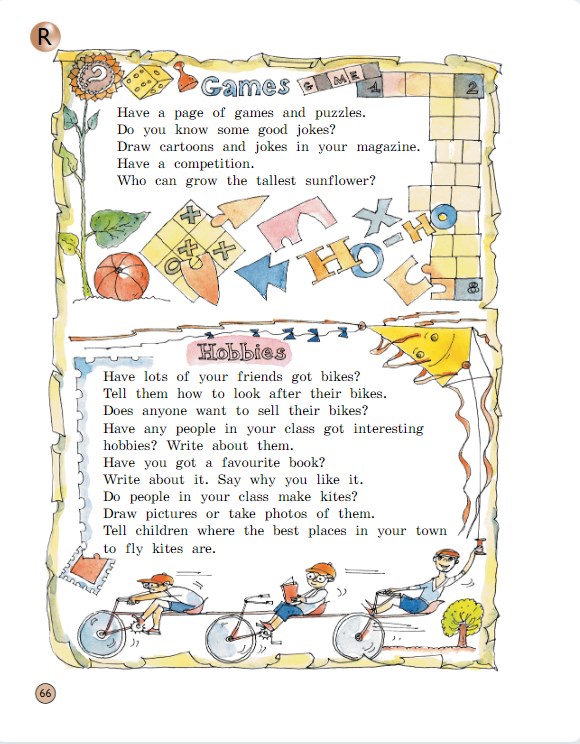 R
Games
G A M E
1
2
Have a page of games and puzzles.
Do you know some good jokes?
Draw cartoons and jokes in your magazine.
Have a competition.
Who can grow the tallest sunflower?
?
HO-HO
8
Hobbies
Have lots of your friends got bikes?
Tell them how to look after their bikes.
Does anyone want to sell their bikes?
Have any people in your class got interesting
hobbies? Write about them.
Have you got a favourite book?
Write about it. Say why you like it.
Do people in your class make kites?
Draw pictures or take photos of them.
Tell children where the best places in your town
to fly kites are.
66